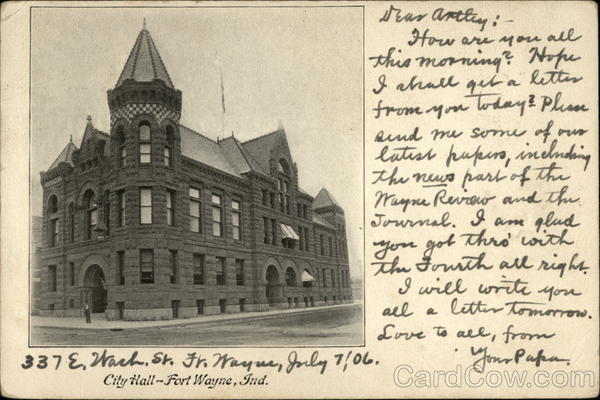 Dear Artley:-
How are you all
this morning? Hope
I shall get a letter
from you today? Please
send me some of our
latest papers, including
the news part of the
Wayne Review and the
Journal. I am glad
you got thro' with
the Fourth all right.
I will write you
all a letter tomorrow.
Love to all, from
Your Papa.
337 E. Wash. St. Ft. Wayne, July 7/06.
City Hall--Fort Wayne, Ind.
CardCow.com